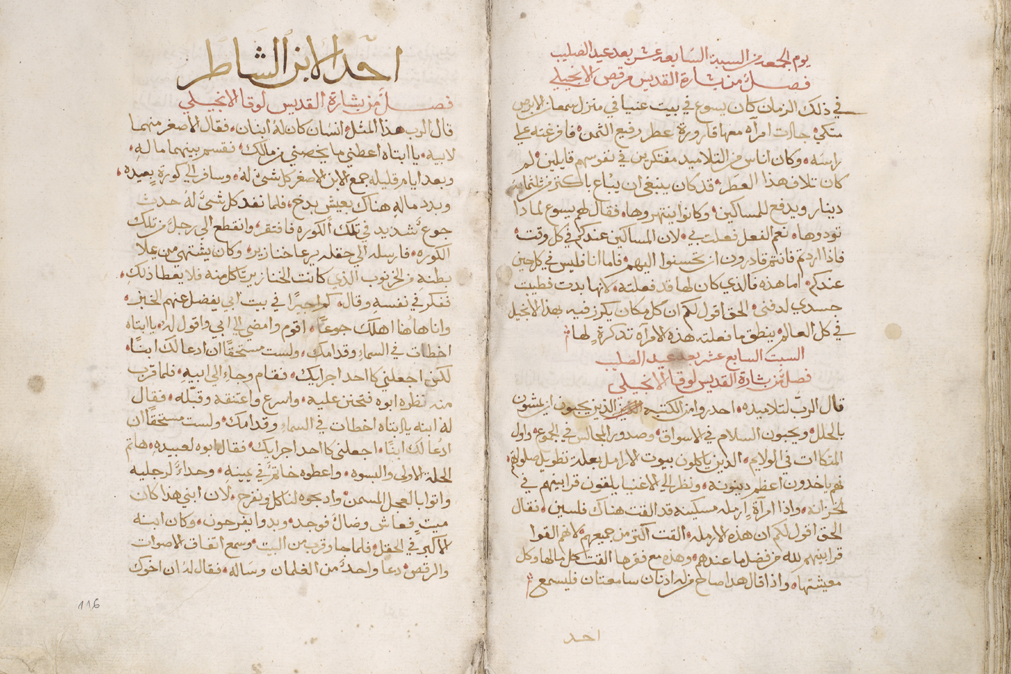 يوم الجمعه من السبه السابعه عشر بعد عيد الصليب
فصل من بشارة القديس مرقص الانجيلي
في ذلك الزمان كان يسوع في بيت عنيا في منزل سمعان الابرص
متكي جات امراه معها قارورة عطر رفيع الثمن فافرغته على
راسه وكان اناس من التلاميذ مفتكرين في نفوسهم قايلين لم
كان تلاف هذا العطر قد كان ينبغي ان يباع باكثر من ثلثمايه
دينار ويدفع للمساكين وكانوا ينتهروها فقال لهم يسوع لماذا
توذوها نعم الفعل فعلت بي لان المساكين عندكم في كل وقت
فاذا اردتم فانتم قادرون ان تحسنوا اليهم فاما انا فليس في كل حين
عندكم اما هذه فالذي كان لها قد فعلته لانها بدت فطيبت
جسدي لدفني الحق اقول لكم ان كل مكان يكرز فيه بهذا الانجيل
في كل العالم ينطق ما فعلته هذه الامراه تذكرة لها
السبت السابع عشر بعد عيد الصليب
فصل من بشارة القديس لوقا الانجيلي
قال الرب لتلاميذه احذروا من الكتبه الذين يحبون ان يمشون
بالحلل ويحبون السلام في الاسواق وصدور المجالس في الجموع واول
المتكات في الولايم الذين ياكلون بيوت الارامل بعلة تطويل صلواتهم
فهم ياخذون اعظم دينونه ونظر الى الاغنيا يلقون قرابينهم في
الخزانه واذا امراة ارمله مسكينه قد القت هناك فلسين فقال
الحق اقول لكم ان هذه الارمله القت اكثر من جميعهم لانهم القوا
قرابينهم لله من فضل ما عندهم وهذه مع فقرها القت كل مالها وكل
معيشتها واذ قال هذا صاح من له اذنان سامعتان فليسمع
احد
احد الابن الشاطر
فصل من بشارة القديس لوقا الانجيلي
قال الرب هذا المثل انسان كان له ابنان فقال الاصغر منهما
لابيه يا ابتاه اعطني ما يخصني من مالك فقسم بينهما ماله
وبعد ايام قليله جمع الابن الاصغر كل شي له وسافر الى كورة بعيده
وبدد ماله هناك بعيش بدخ فلما نفد كل شي له حدث
جوع شديد في تلك الكوره فافتقر وانقطع الى رجل من تلك
الكوره فارسله الى حقله يرعا خنازير وكان يشتهي من يملا
بطنه من الخرنوب الذي كانت الخنازير تاكل منه فلا يعطا ذلك
ففكر في نفسه وقال كم اجيرا في بيت ابي يفضل عنهم الخبز
وانا هاهنا اهلك جوعا اقوم وامضي الى ابي واقول له يا ابتاه
اخطات في السماء وقدامك ولست مستحقا ان ادعا لك ابنا
لكن اجعلني كاحد اجرايك فقام وجاء الى ابيه فلما قرب
منه نظره ابوه فتحنن عليه واسرع واعتنقه وقبله فقال
له ابنه يا ابتاه اخطات في السماء وقدامك ولست مستحقا ان
ادعا لك ابنا اجعلني كاحد اجرايك فقال ابوه لعبيده هاتم
الحلة الاولى والبسوه واعطوه خاتم في يمينه وحذاء لرجليه
واتوا بالعجل المسمن وادبحوه لناكل ونفرح لان ابني هذا كان
ميت فعاش وضال فوجد وبدوا يفرحون وكان ابنه
الاكبر في الحقل فلما جا وقرب من البيت وسمع اتفاق الاصوات
والرقص دعا واحد من الغلمان وساله فقال له ان اخوك
116